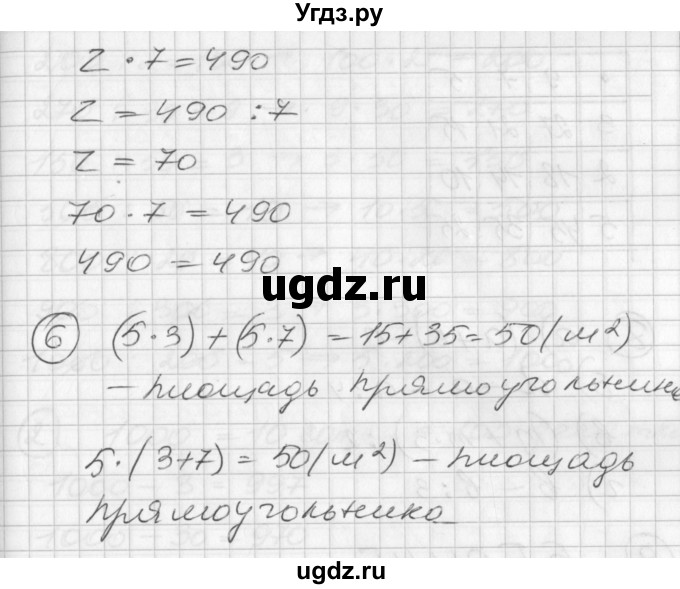 Угдз.ру
z · 7 = 490
z = 490 : 7
z = 70
70 · 7 = 490
490 = 490
ugdz.ru
6 (5·3) + (5·7) = 15 + 35 = 50 (м²)
– площадь прямоугольника
5 · (3+7) = 50 (м²) – площадь
прямоугольника
ugdz.ru